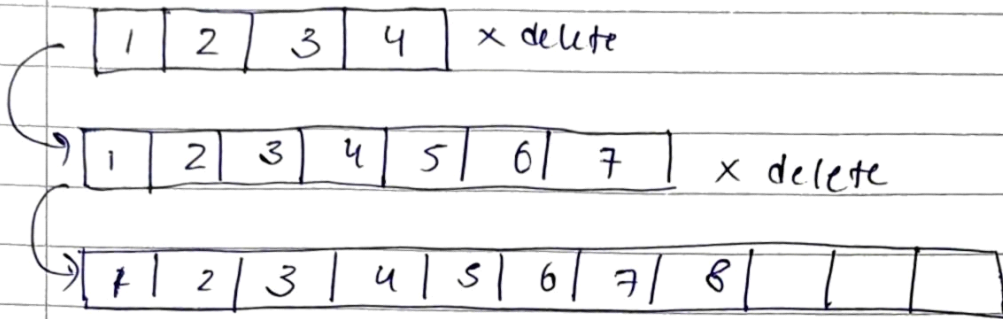 1 2 3 4 x delete
1 2 3 4 5 6 7 x delete
1 2 3 4 5 6 7 8